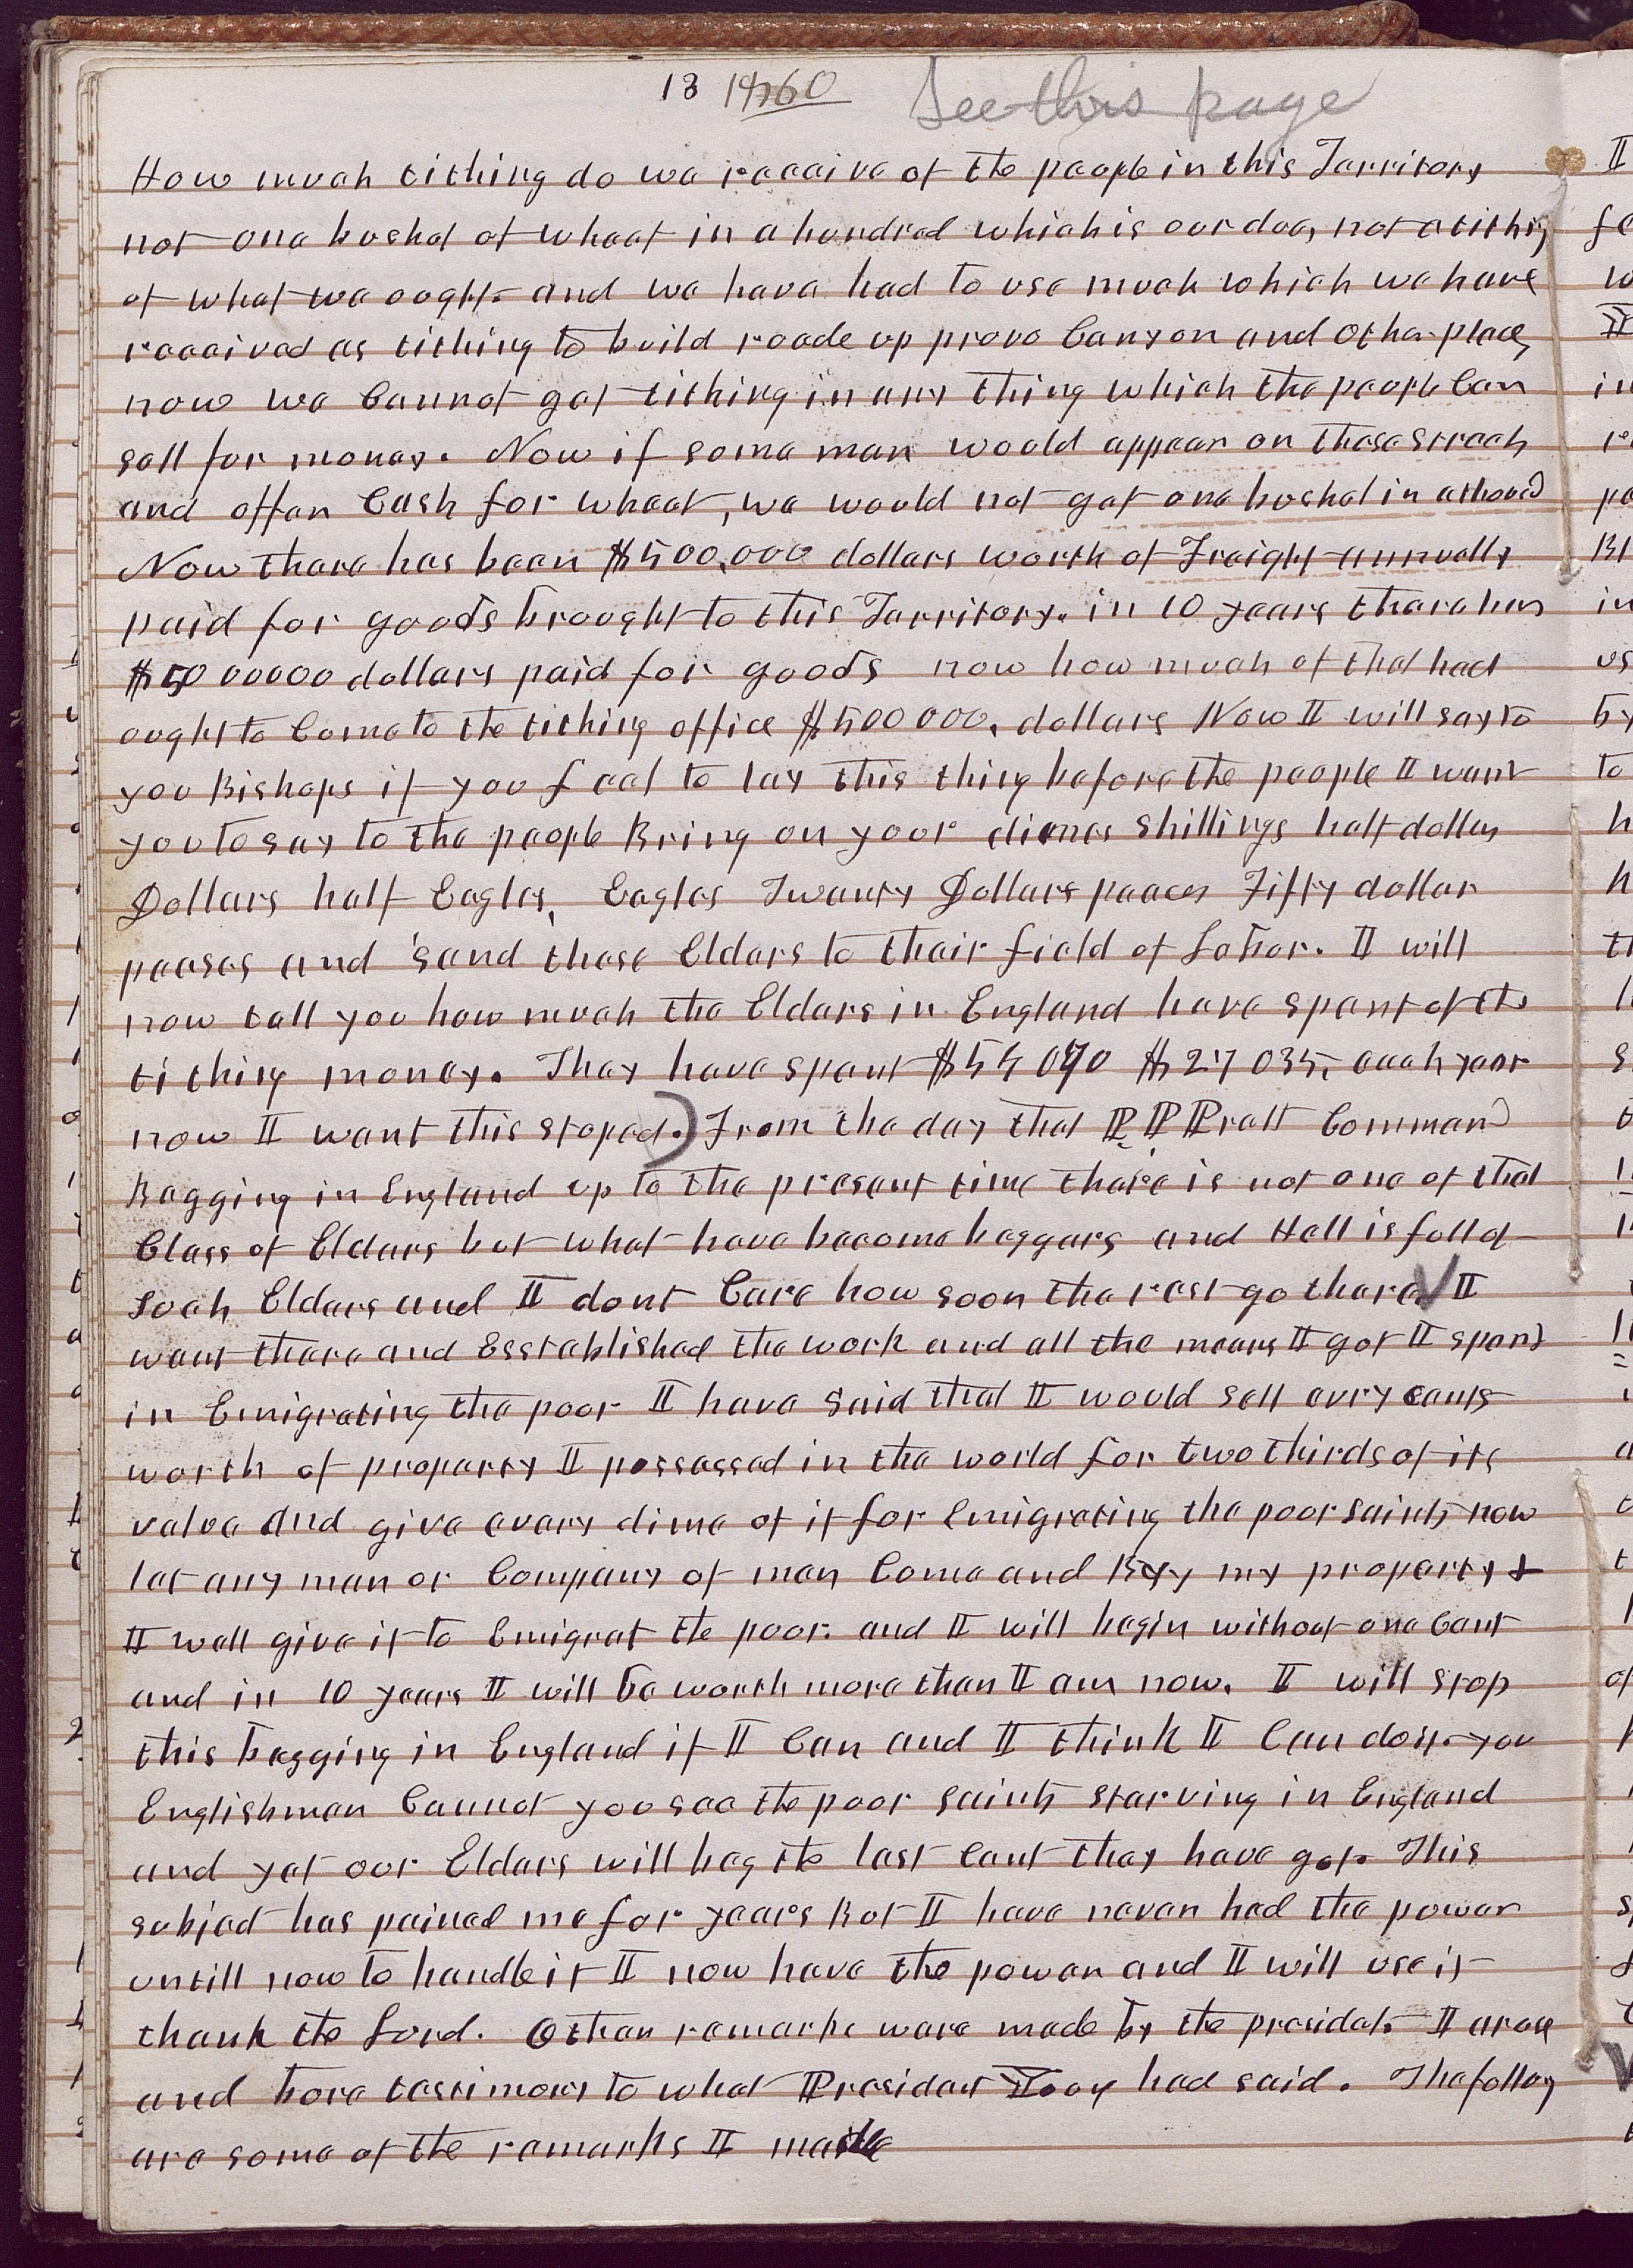 18 1860 See this page
How much tithing do we receive of the people in this Territory
not one bushel of wheat in a hundred which is our due, not a tithing
of what we ought. and we have had to use much which we have
received as tithing to build roade up provo Canyon and Other places
now we Cannot get tithing in any thing which the people Can
sell for money. Now if some man would appear on these streets
and offer Cash for wheat, we would not get one bushel in a thousand
Now there has been $500,000 dollars worth of Freight annually
paid for goods brought to this Territory. in 10 years there has
$5000000 dollars paid for goods now how much of that had
ought to Come to the tithing office $500000. dollars Now I will say to
you Bishops if you feel to lay this thing before the people I want
you to say to the people Bring on your dimes shillings half dollars
Dollars half Eagles, Eagles Twenty Dollars peaces Fifty dollar
peases and send these Elders to their field of Labor. I will
now tell you how much the Elders in England have spent of the
tithing money. They have spent $54070 $27035, each year
now I want this stoped.) From the day that P P Pratt Commend
Begging in England up to the present time there is not one of that
Class of Elders but what have become beggars and Hell is full of
such Elders and I dont Care how soon the rest go there. I
went there and Esstablished the work and all the means I got I spent
in Emigrating the poor I have said that I would sell evry cents
worth of property I possessed in the world for two thirds of its
value And give every dime of it for Emigrating the poor saints now
let any man or Company of men Come and Buy my property &
I well give it to Emigrat the poor. and I will begin without one Cent
and in 10 years I will be worth more than I am now. I will stop
this begging in England if I Can and I think I Can do it. you
Englishmen Cannot you see the poor saints starving in England
and yet our Elders will beg the last Cent they have got. This
subject has pained me for years But I have never had the power
untill now to handle it I now have the power and I will use it
thank the Lord. Other remarks were made by the presidet. I arose
and bore testimony to what President Young had said. The follwing
are some of the remarks I made